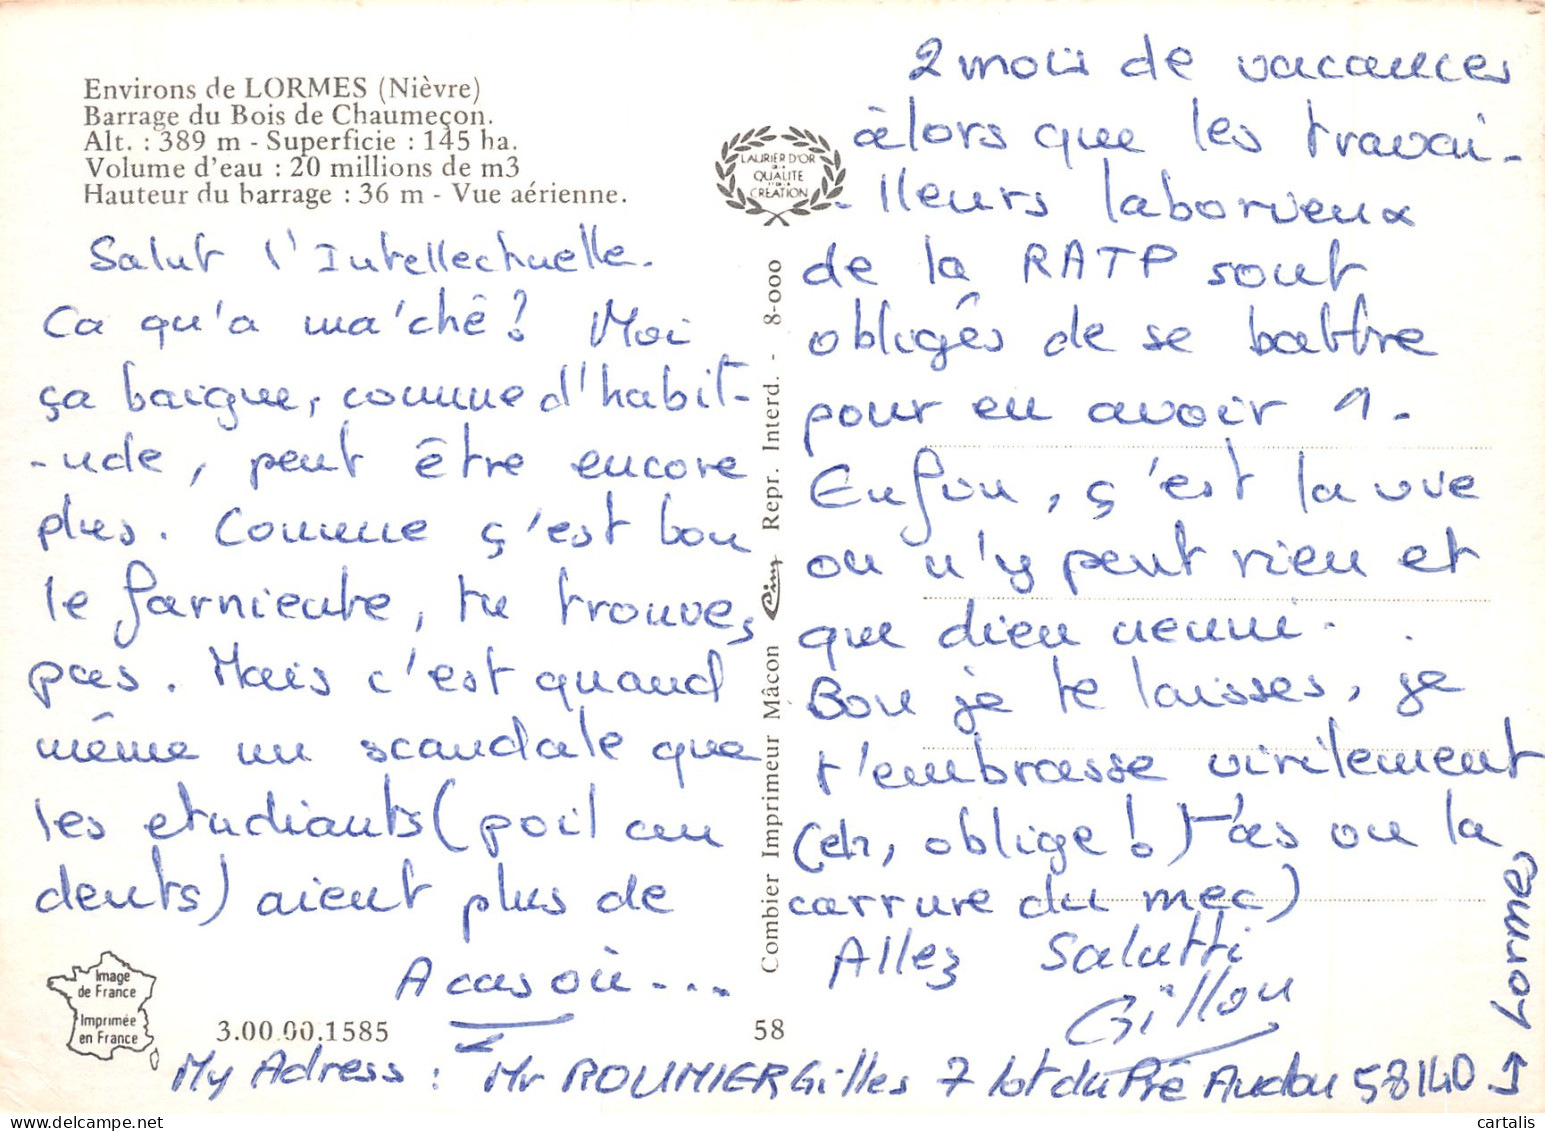 Environs de LORMES (Nièvre)
Barrage du Bois de Chaumeçon.
Alt. : 389 m - Superficie : 145 ha.
Volume d'eau : 20 millions de m3
Hauteur du barrage : 36 m - Vue aérienne.
Salut l'Intellectuelle.
Ca qu'a ma'ché? Moi
ça baigne, comme d'habit-
-ude, peut être encore
plus. Comme ç'est bon
le farniente, tu trouves
pas. Mais c'est quand
même un scandale que
les etudiants (poil au
dents) aient plus de
2 mois de vacances
àlors que les travai-
-lleurs laborieux
de la RATP sont
obligés de se battre
pour en avoir 1.
Enfin, ç'est la vie
on n'y peut rien et
que dieu nenni.
Bon je te laisses, je
t'embrasse virilement
(eh, oblige! T'as ou la
carrure du mec)
Allez Salutti
Gillou
A cas où...
My Adress : Mr ROUMIER Gilles 7 lot du Pré Audon 58140
Lormes
LAURIER D'OR
DE LA
QUALITE
ET DE LA
CREATION
Combier Imprimeur Mâcon Cim Repr. Interd. - 8-000
Image
de France
Imprimée
en France
3.00.00.1585
58
cartalis